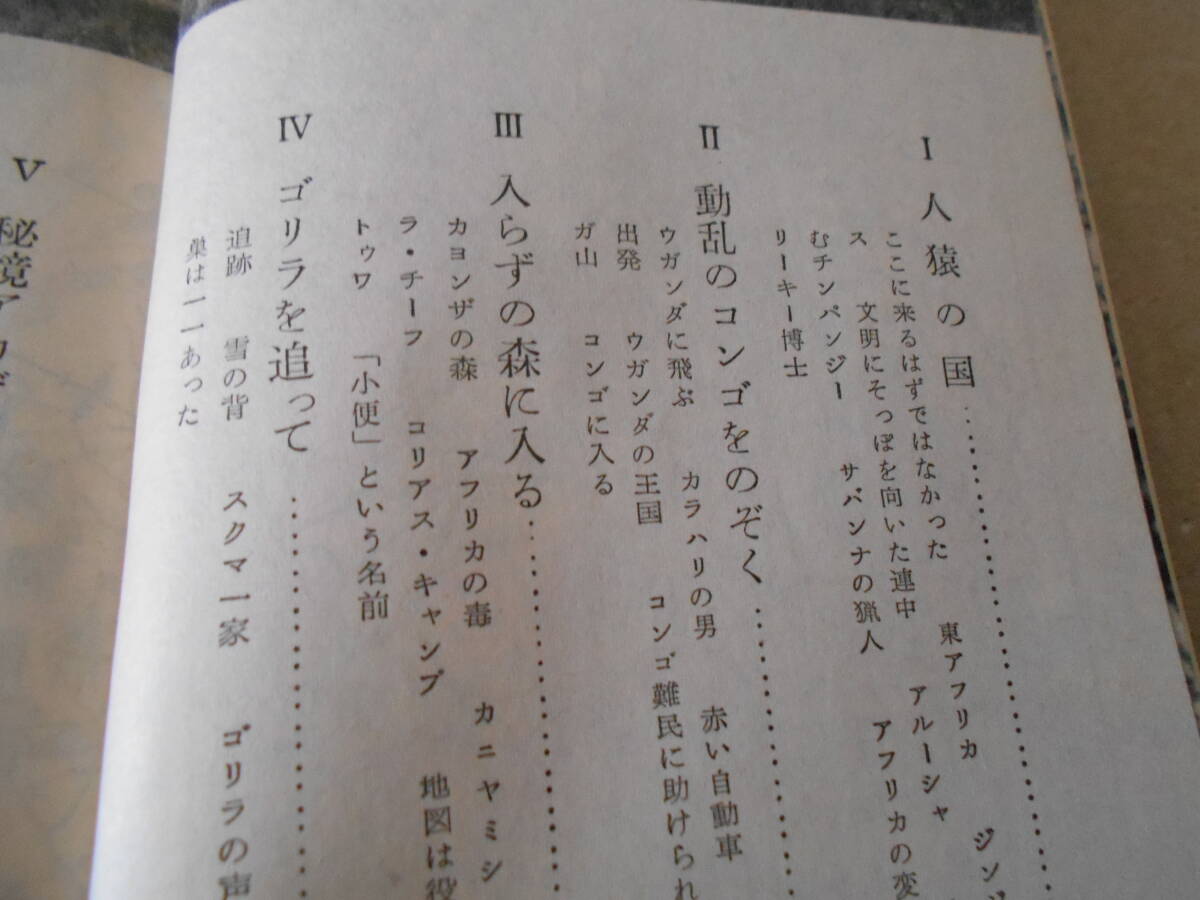 I 人猿の国
ここに来るはずではなかった 東アフリカ ジン
ス 文明にそっぽを向いた連中 アルーシャ
むチンパンジー サバンナの猟人 アフリカの変
リーキー博士
II 動乱のコンゴをのぞく
ウガンダに飛ぶ カラハリの男 赤い自動車
出発 ウガンダの王国 コンゴ難民に助けられ
ガ山 コンゴに入る
III 入らずの森に入る
カヨンザの森 アフリカの毒 カニヤミシ
ラ・チーフ コリアス・キャンプ 地図は役
トゥワ 「小便」という名前
IV ゴリラを追って
追跡 雪の背 スクマ一家 ゴリラの声
巣は一一あった
V 秘境